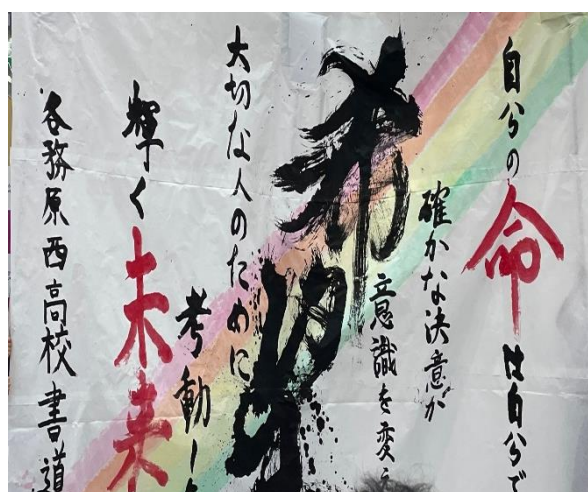 自分の命は自分で
確かな決意が
意識を変え
希望
大切な人のために
考動し
輝く未来
各務原西高校書道